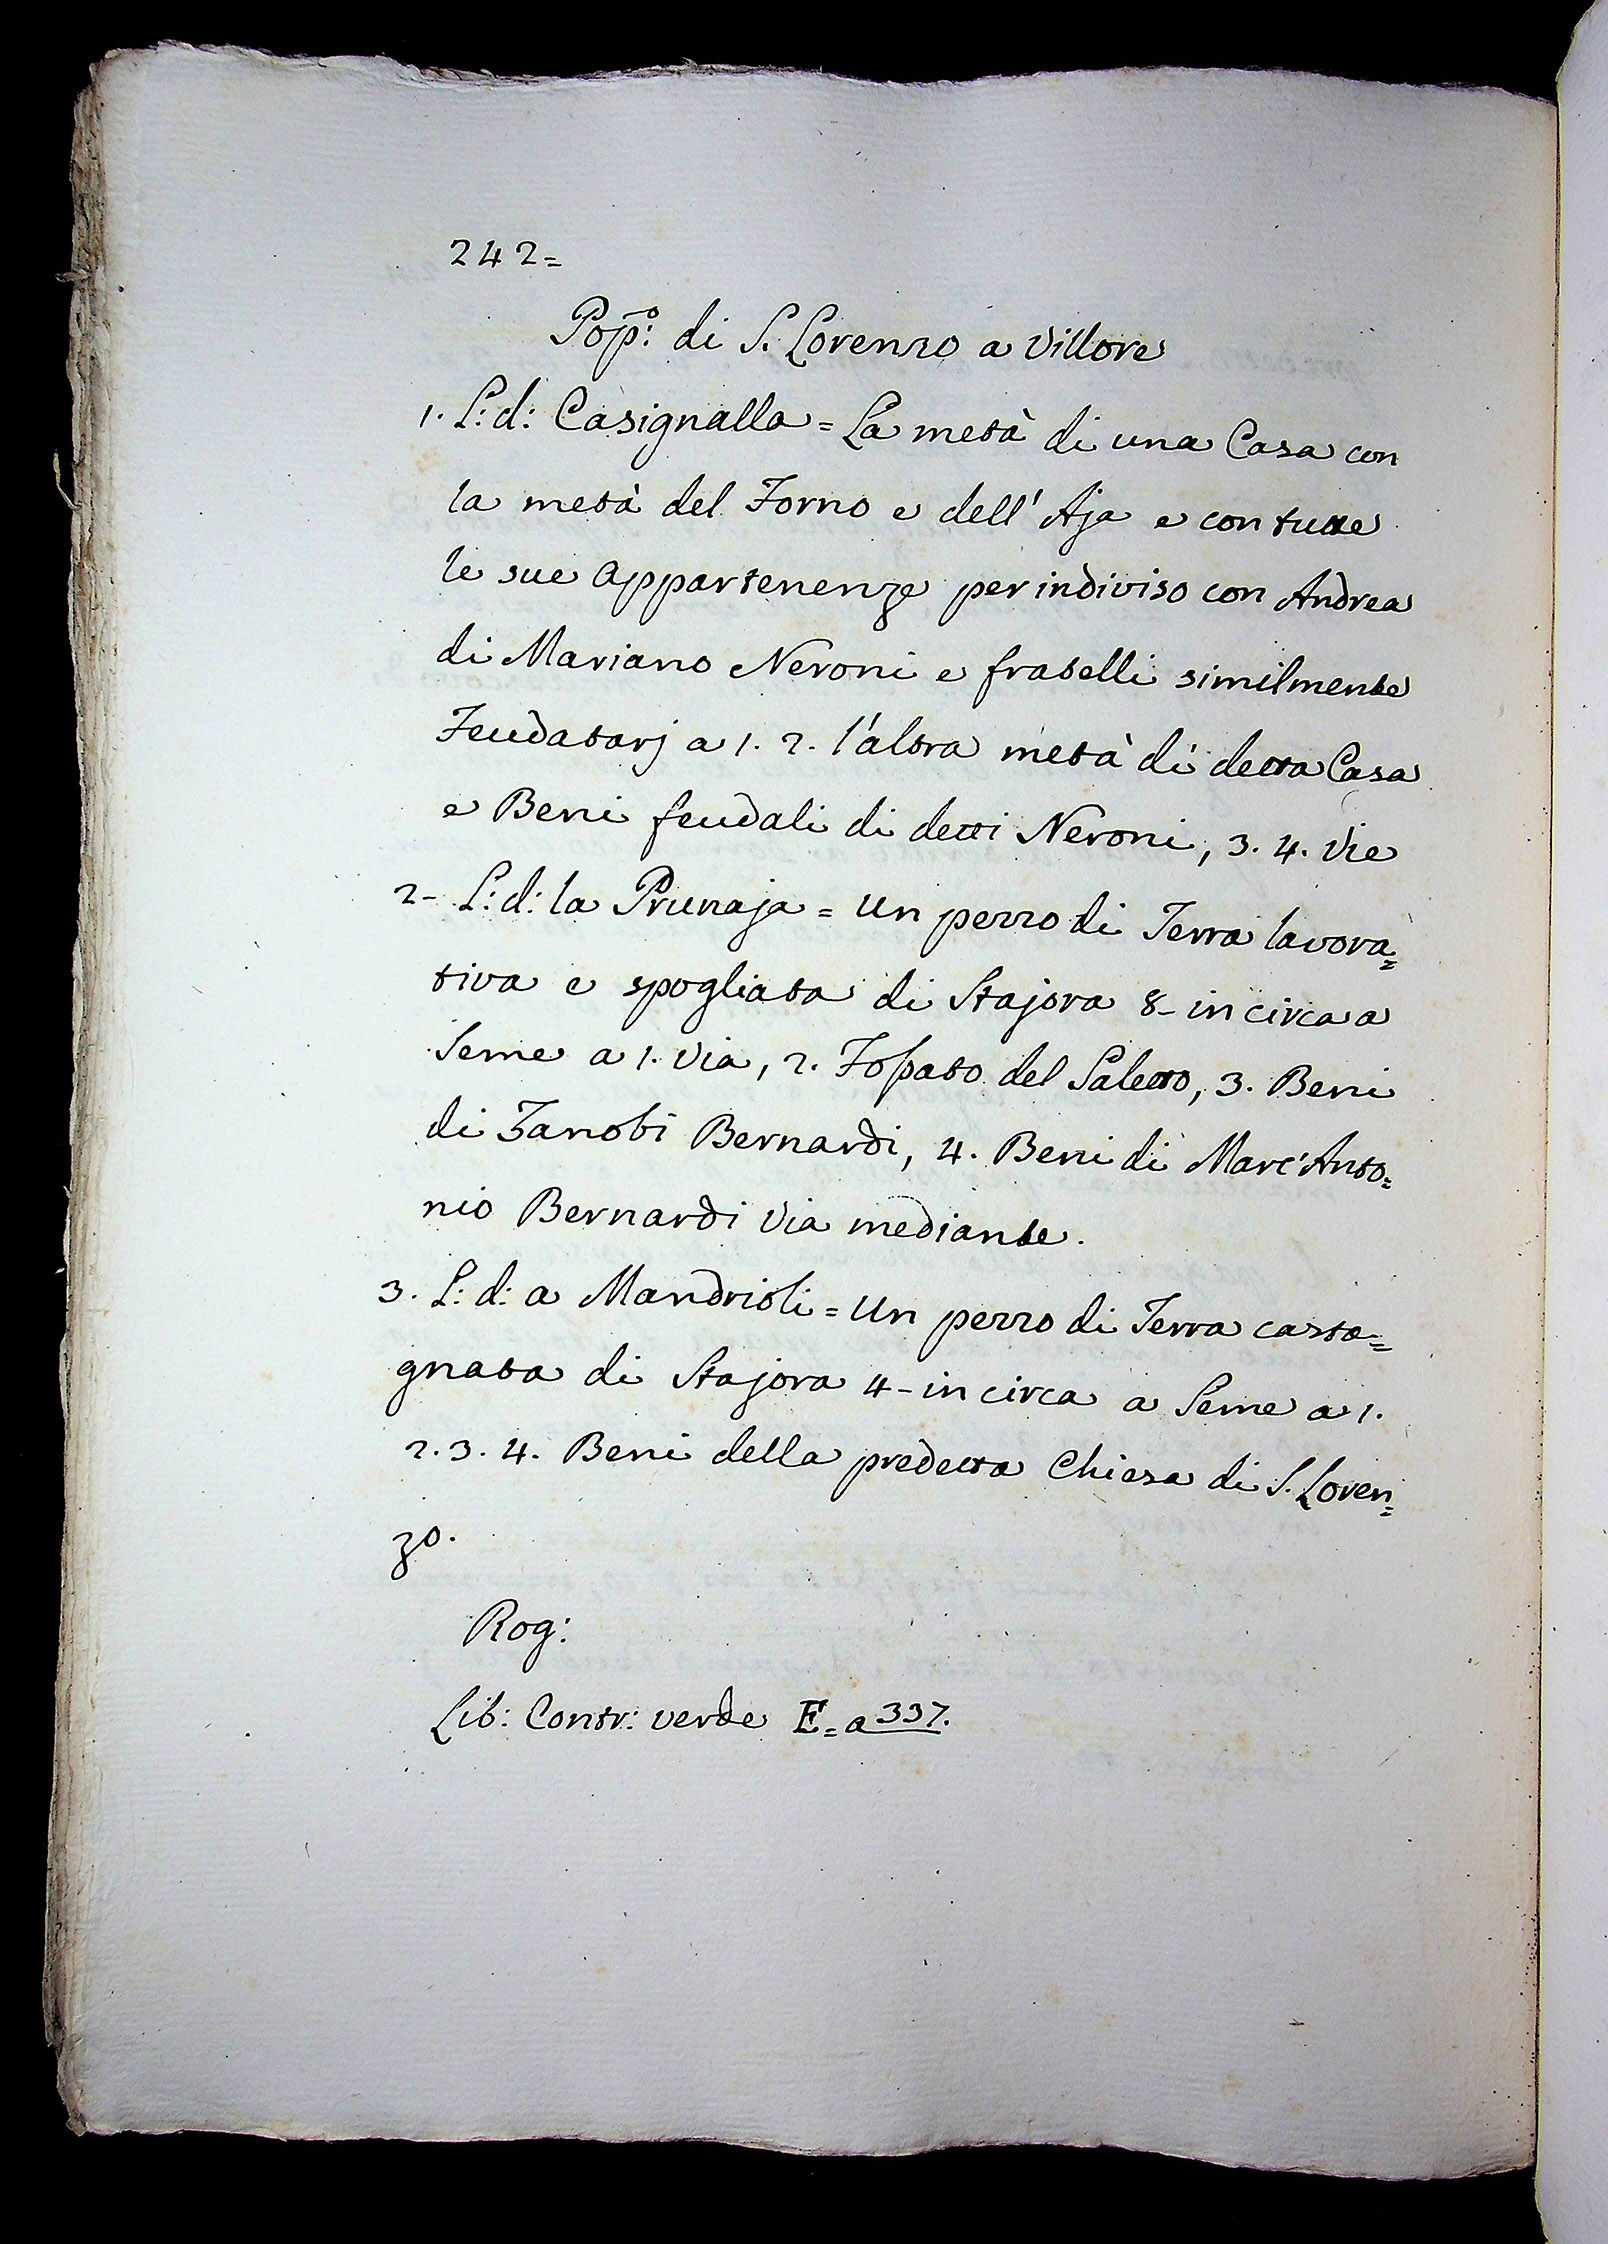 242=
Pop.º: di S. Lorenzo a Villore
1. L: d: Casignalla = La metà di una Casa con
la metà del Forno e dell' Aja e con tutte
le sue Appartenenze per indiviso con Andrea
di Mariano Neroni e fratelli similmente
Feudatarj a 1. 2. l'altra metà di detta Casa
e Beni feudali di detti Neroni, 3. 4. Vie
2- L: d: la Prunaja = Un pezzo di Terra lavora=
tiva e spogliata di Stajora 8- in circa a
Seme a 1. Via, 2. Fossato del Saletto, 3. Beni
di Zanobi Bernardi, 4. Beni di Marc'Anto=
nio Bernardi Via mediante.
3. L: d: a Mandrioli = Un pezzo di Terra casta=
gnata di Stajora 4- in circa a Seme a 1.
2. 3. 4. Beni della predetta Chiesa di S. Loren=
zo.
Rog:
Lib: Contr: verde E= a 337.